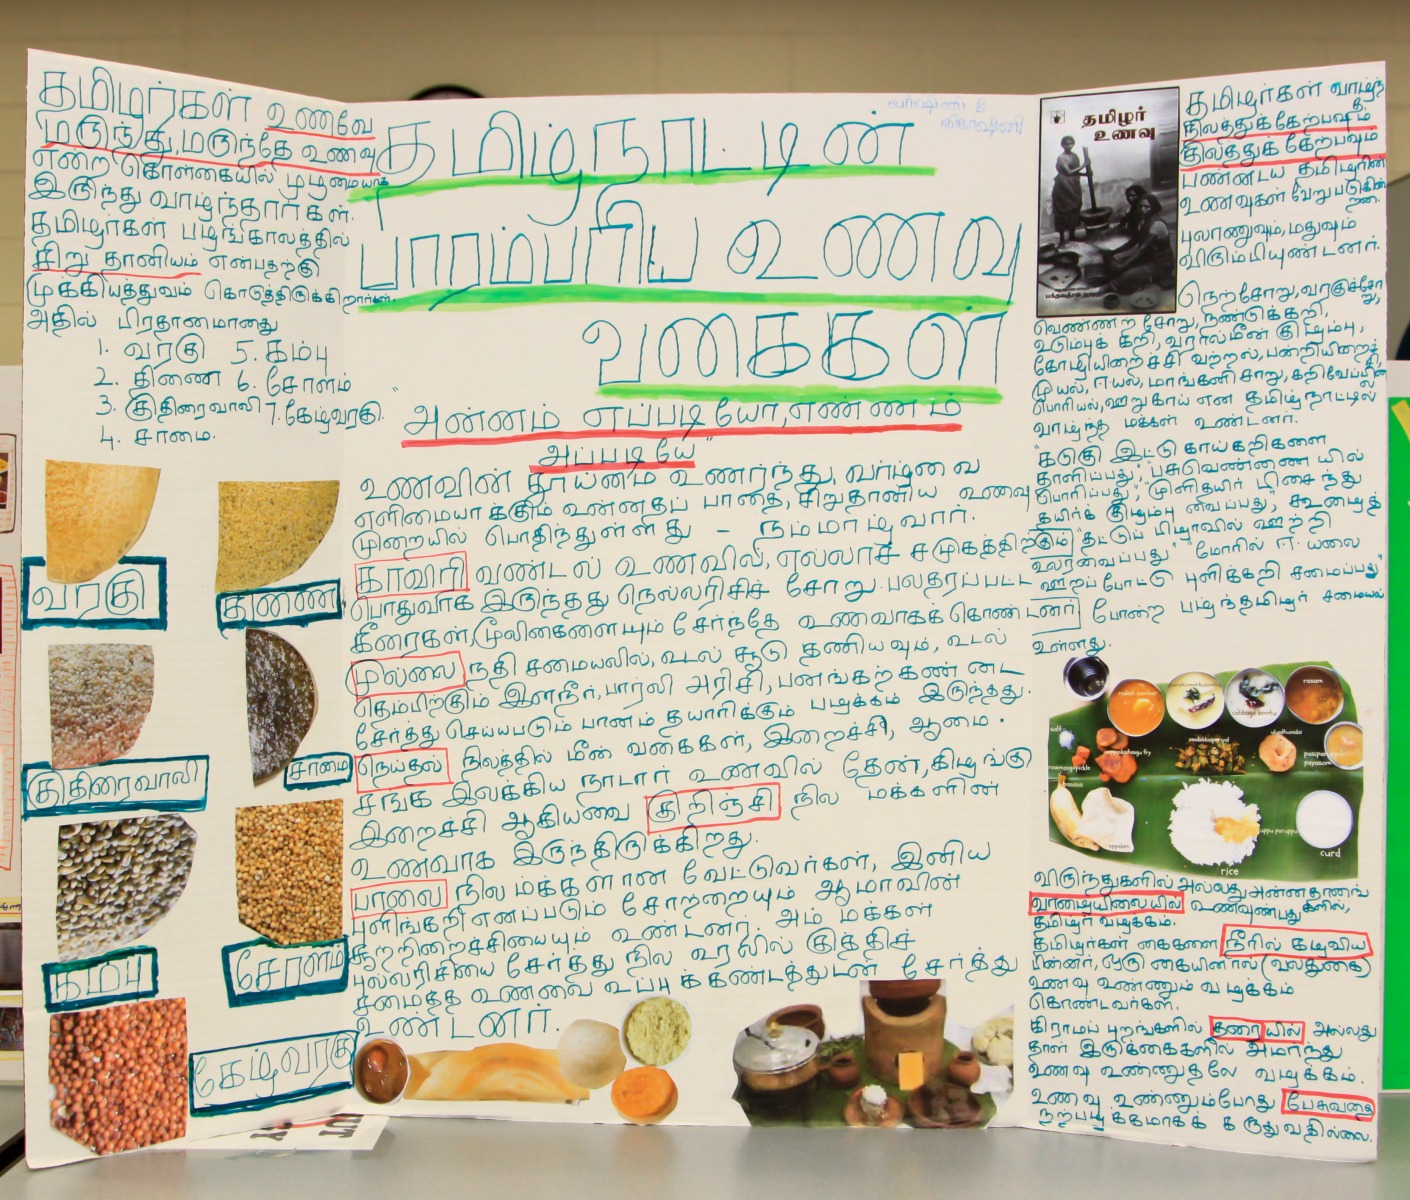 தமிழர்கள் உணவே
மருந்து, மருந்தே உணவு
என்ற கொள்கையில் முழுமையாக
இருந்து வாழ்ந்தார்கள்.
தமிழர்கள் பழங்காலத்தில்
சிறு தானியம் என்பதற்கு
முக்கியத்துவம் கொடுத்திருக்கிறார்கள்.
அதில் பிரதானமானது
1. வரகு 5. கம்பு
2. திணை 6. சோளம்
3. குதிரைவாலி 7. கேழ்வரகு.
4. சாமை.
வரகு
திணை
குதிரைவாலி
சாமை
கம்பு
சோளம்
கேழ்வரகு
தமிழ்நாட்டின்
பாரம்பரிய உணவு
வகைகள்
"அன்னம் எப்படியோ, எண்ணம்
அப்படியே"
உணவின் தூய்மை உணர்ந்து, வாழ்வை
எளிமையாக்கும் உன்னதப் பாதை, சிறுதானிய உணவு
முறையில் பொதிந்துள்ளது - நம்மாழ்வார்.
காவிரி வண்டல் உணவில், எல்லாச் சமுகத்திற்கும்
பொதுவாக இருந்தது நெல்லரிசிச் சோறு. பலதரப்பட்ட
கீரைகள், மூலிகைளையும் சேர்ந்தே உணவாகக் கொண்டனர்
முல்லை நதி சமையலில், உடல் சூடு தணியவும், உடல்
தெம்பிற்கும் இளநீர், பார்லி அரிசி, பனங்கற்கண்டை
சேர்த்து செய்யபடும் பானம் தயாரிக்கும் பழக்கம் இருந்தது.
நெய்தல் நிலத்தில் மீன் வகைகள், இறைச்சி, ஆமை.
சங்க இலக்கிய நாடார் உணவில் தேன், கிழங்கு
இறைச்சி ஆகியவை குறிஞ்சி நில மக்களின்
உணவாக இருந்திருக்கிறது.
பாலை நில மக்களான வேட்டுவர்கள், இனிய
புளிங்கறி எனப்படும் சோற்றையும் ஆமாவின்
சூற்றிறைச்சியையும் உண்டனர். அம் மக்கள்
புல்லரிசியை சேர்த்து நில உரலில் குத்திச்
சமைத்த உணவை உப்புக்கண்டத்துடன் சேர்த்து
உண்டனர்.
தமிழர்
உணவு
தமிழர்கள் வாழ்ந்த
நிலத்துக்கேற்பவும்
நிலத்துக்கேற்பவும்
பண்டைய தமிழரின்
உணவுகள் வேறுபடுகின்றன.
புலாணுவும், மதுவும்
விரும்பியுண்டனர்.
நெற்சோறு, வரகுச்சோறு,
வெண்ணற சோறு, நண்டுக்கறி,
உடும்புக் கறி, வரால்மீன் குழம்பு,
கோழியிறைச்சி வற்றல், பன்றியிறைச்சி,
முயல், ஈயல், மாங்கனி சாறு, கறிவேப்பிலை
பொரியல், ஊறுகாய் என தமிழ்நாட்டில்
வாழ்ந்த மக்கள் உண்டனர்.
"கடுகு இட்டு காய்கறிகளை
தாளிப்பது", "பசுவெண்ணையில்
பொரிப்பது", "முளிதயிர் பிசைந்து
தயிர்க் குழம்பு வைப்பது", "கூழைத்
தட்டுப் பிழாவில் ஊற்றி
உலரவைப்பது" "மோரில் ஈயலை
ஊறப்போட்டு புளிக்கறி சமைப்பது"
போன்ற பழந்தமிழர் சமையல்
உள்ளது.
rasam
salt
banana
appalam
rice
curd
விருந்துகளில் அல்லது அன்னதானங்
வாழையிலையில் உணவுண்பதுகளில்,
தமிழர் வழக்கம்.
தமிழர்கள் கைகளை நீரில் கழுவிய
பின்னர், ஒரு கையினால் (வலதுகை)
உணவு உண்ணும் வழக்கம்
கொண்டவர்கள்.
கிராமப் புறங்களில் தரையில் அல்லது
தாள் இருக்கைகளில் அமர்ந்து
உணவு உண்ணுதலே வழக்கம்.
உணவு உண்ணும்போது பேசுவதை
நற்பழக்கமாகக் கருதுவதில்லை.